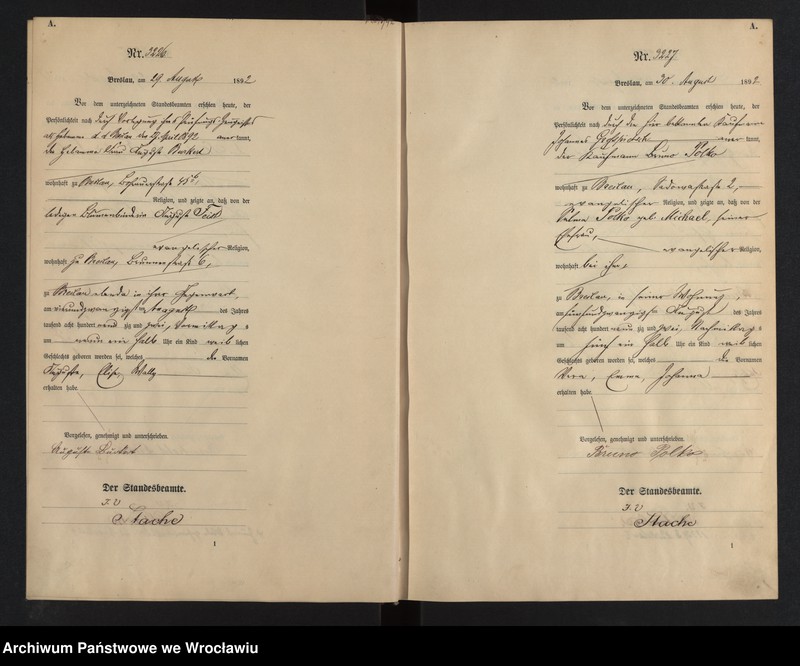 A.
Nr. 3226
Breslau, am 29. August 1892
Vor dem unterzeichneten Standesbeamten erschien heute, der
Persönlichkeit nach durch Vorlegung des Prüfungs-Zeugnisses
als Hebamme d. d. Breslau den
die Hebamme Auguste
wohnhaft zu Breslau,
Religion, und zeigte an, daß von der
ledigen Blumenbinderin Auguste
evangelischer Religion,
wohnhaft zu Breslau, Brunnenstraße 6,
zu Breslau ebenda in ihrer Gegenwart,
am vierundzwanzigsten August des Jahres
tausend acht hundert neunzig und zwei, Vormittags
um neun ein halb Uhr ein Kind weiblichen
Geschlechts geboren worden sei, welches die Vornamen
Auguste, Elise, Wally
erhalten habe.
Vorgelesen, genehmigt und unterschrieben.
Auguste
Der Standesbeamte.
J. V
Stache
1
A.
Nr. 3227
Breslau, am 30. August 1892
Vor dem unterzeichneten Standesbeamten erschien heute, der
Persönlichkeit nach durch den hier bekannten Kaufmann
Johannes anerkannt,
der Kaufmann Bruno Polko
wohnhaft zu Breslau, Sadowastraße 2,
evangelischer Religion, und zeigte an, daß von der
Selma Polko geb. Michael, seiner
Ehefrau,
evangelischer Religion,
wohnhaft bei ihm,
zu Breslau, in seiner Wohnung,
am fünfundzwanzigsten August des Jahres
tausend acht hundert neunzig und zwei, Nachmittags
um fünf ein halb Uhr ein Kind weiblichen
Geschlechts geboren worden sei, welches die Vornamen
Vera, Emma, Johanna
erhalten habe.
Vorgelesen, genehmigt und unterschrieben.
Bruno Polko
Der Standesbeamte.
J. V
Stache
1
Archiwum Państwowe we Wrocławiu